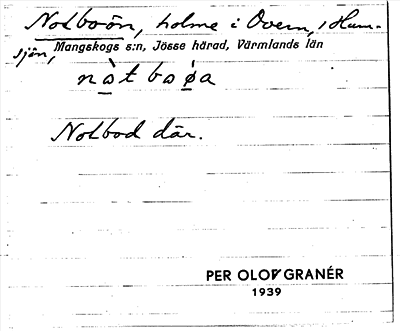 Notboön, holme i Overn, i Hum-
sjön, Mangskogs s:n, Jösse härad, Värmlands län
nòt bo øa
Notbod där.
PER OLOF GRANÉR
1939